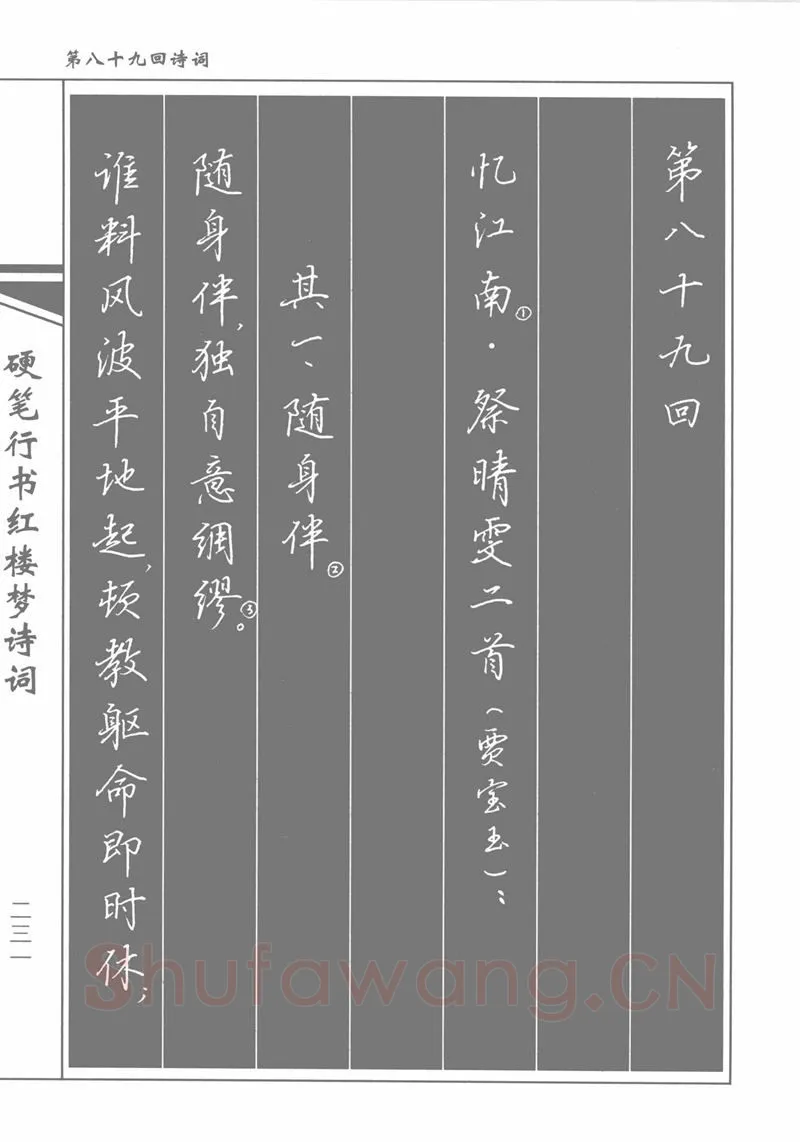 第八十九回诗词
第八十九回
忆江南①·祭晴雯二首（贾宝玉）：
其一、随身伴②
随身伴，独自意绸缪③。
谁料风波平地起，顿教躯命即时休；
硬笔行书红楼梦诗词
二三一
Shufawang.CN